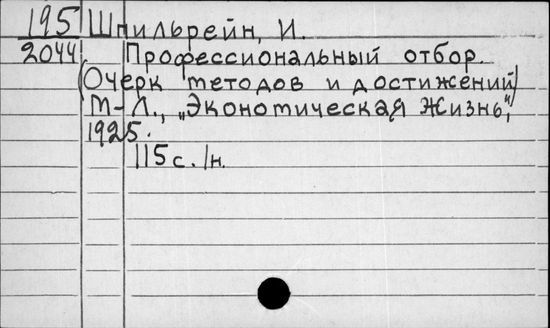 195 Шпильрейн, И.
2044 Профессиональный отбор.
(Очерк методов и достижений)
М-Л., „Экономическая жизнь",
1925.
115 с. /н.